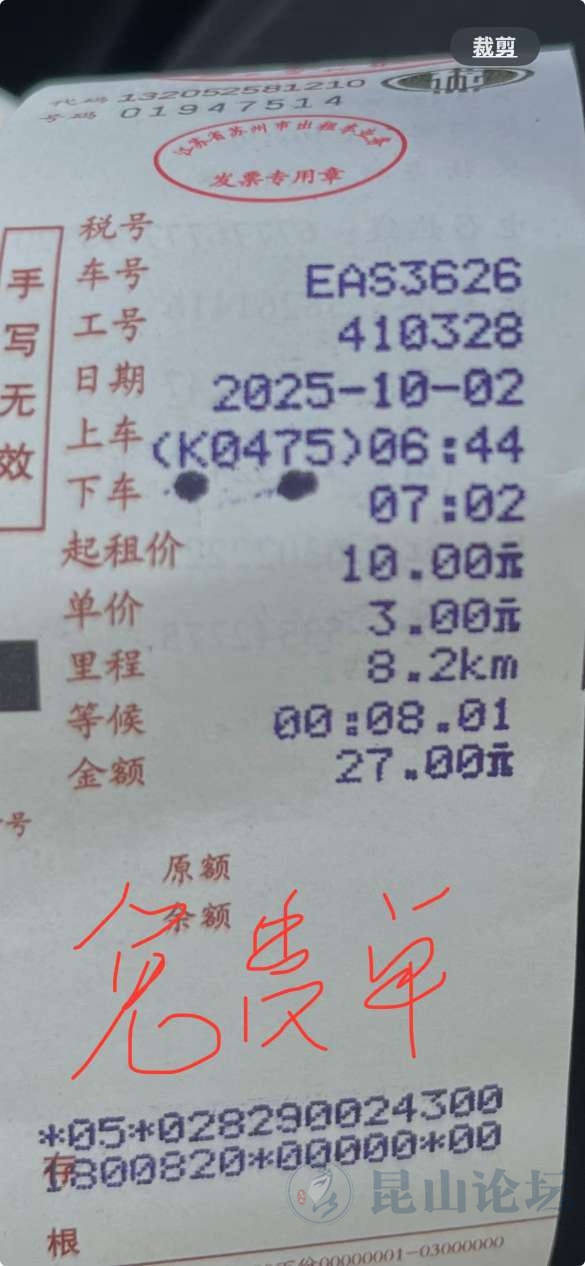 裁剪
代码 132052581210
号码 01947514
发票专用章
手写无效
税号
车号 EAS3626
工号 410328
日期 2025-10-02
上车 (K0475)06:44
下车 07:02
起租价 10.00元
单价 3.00元
里程 8.2km
等候 00:08.01
金额 27.00元
号
原额
余额
免费单
*05*028290024300
1800820*00000*00
存根
昆山论坛
00000001-03000000